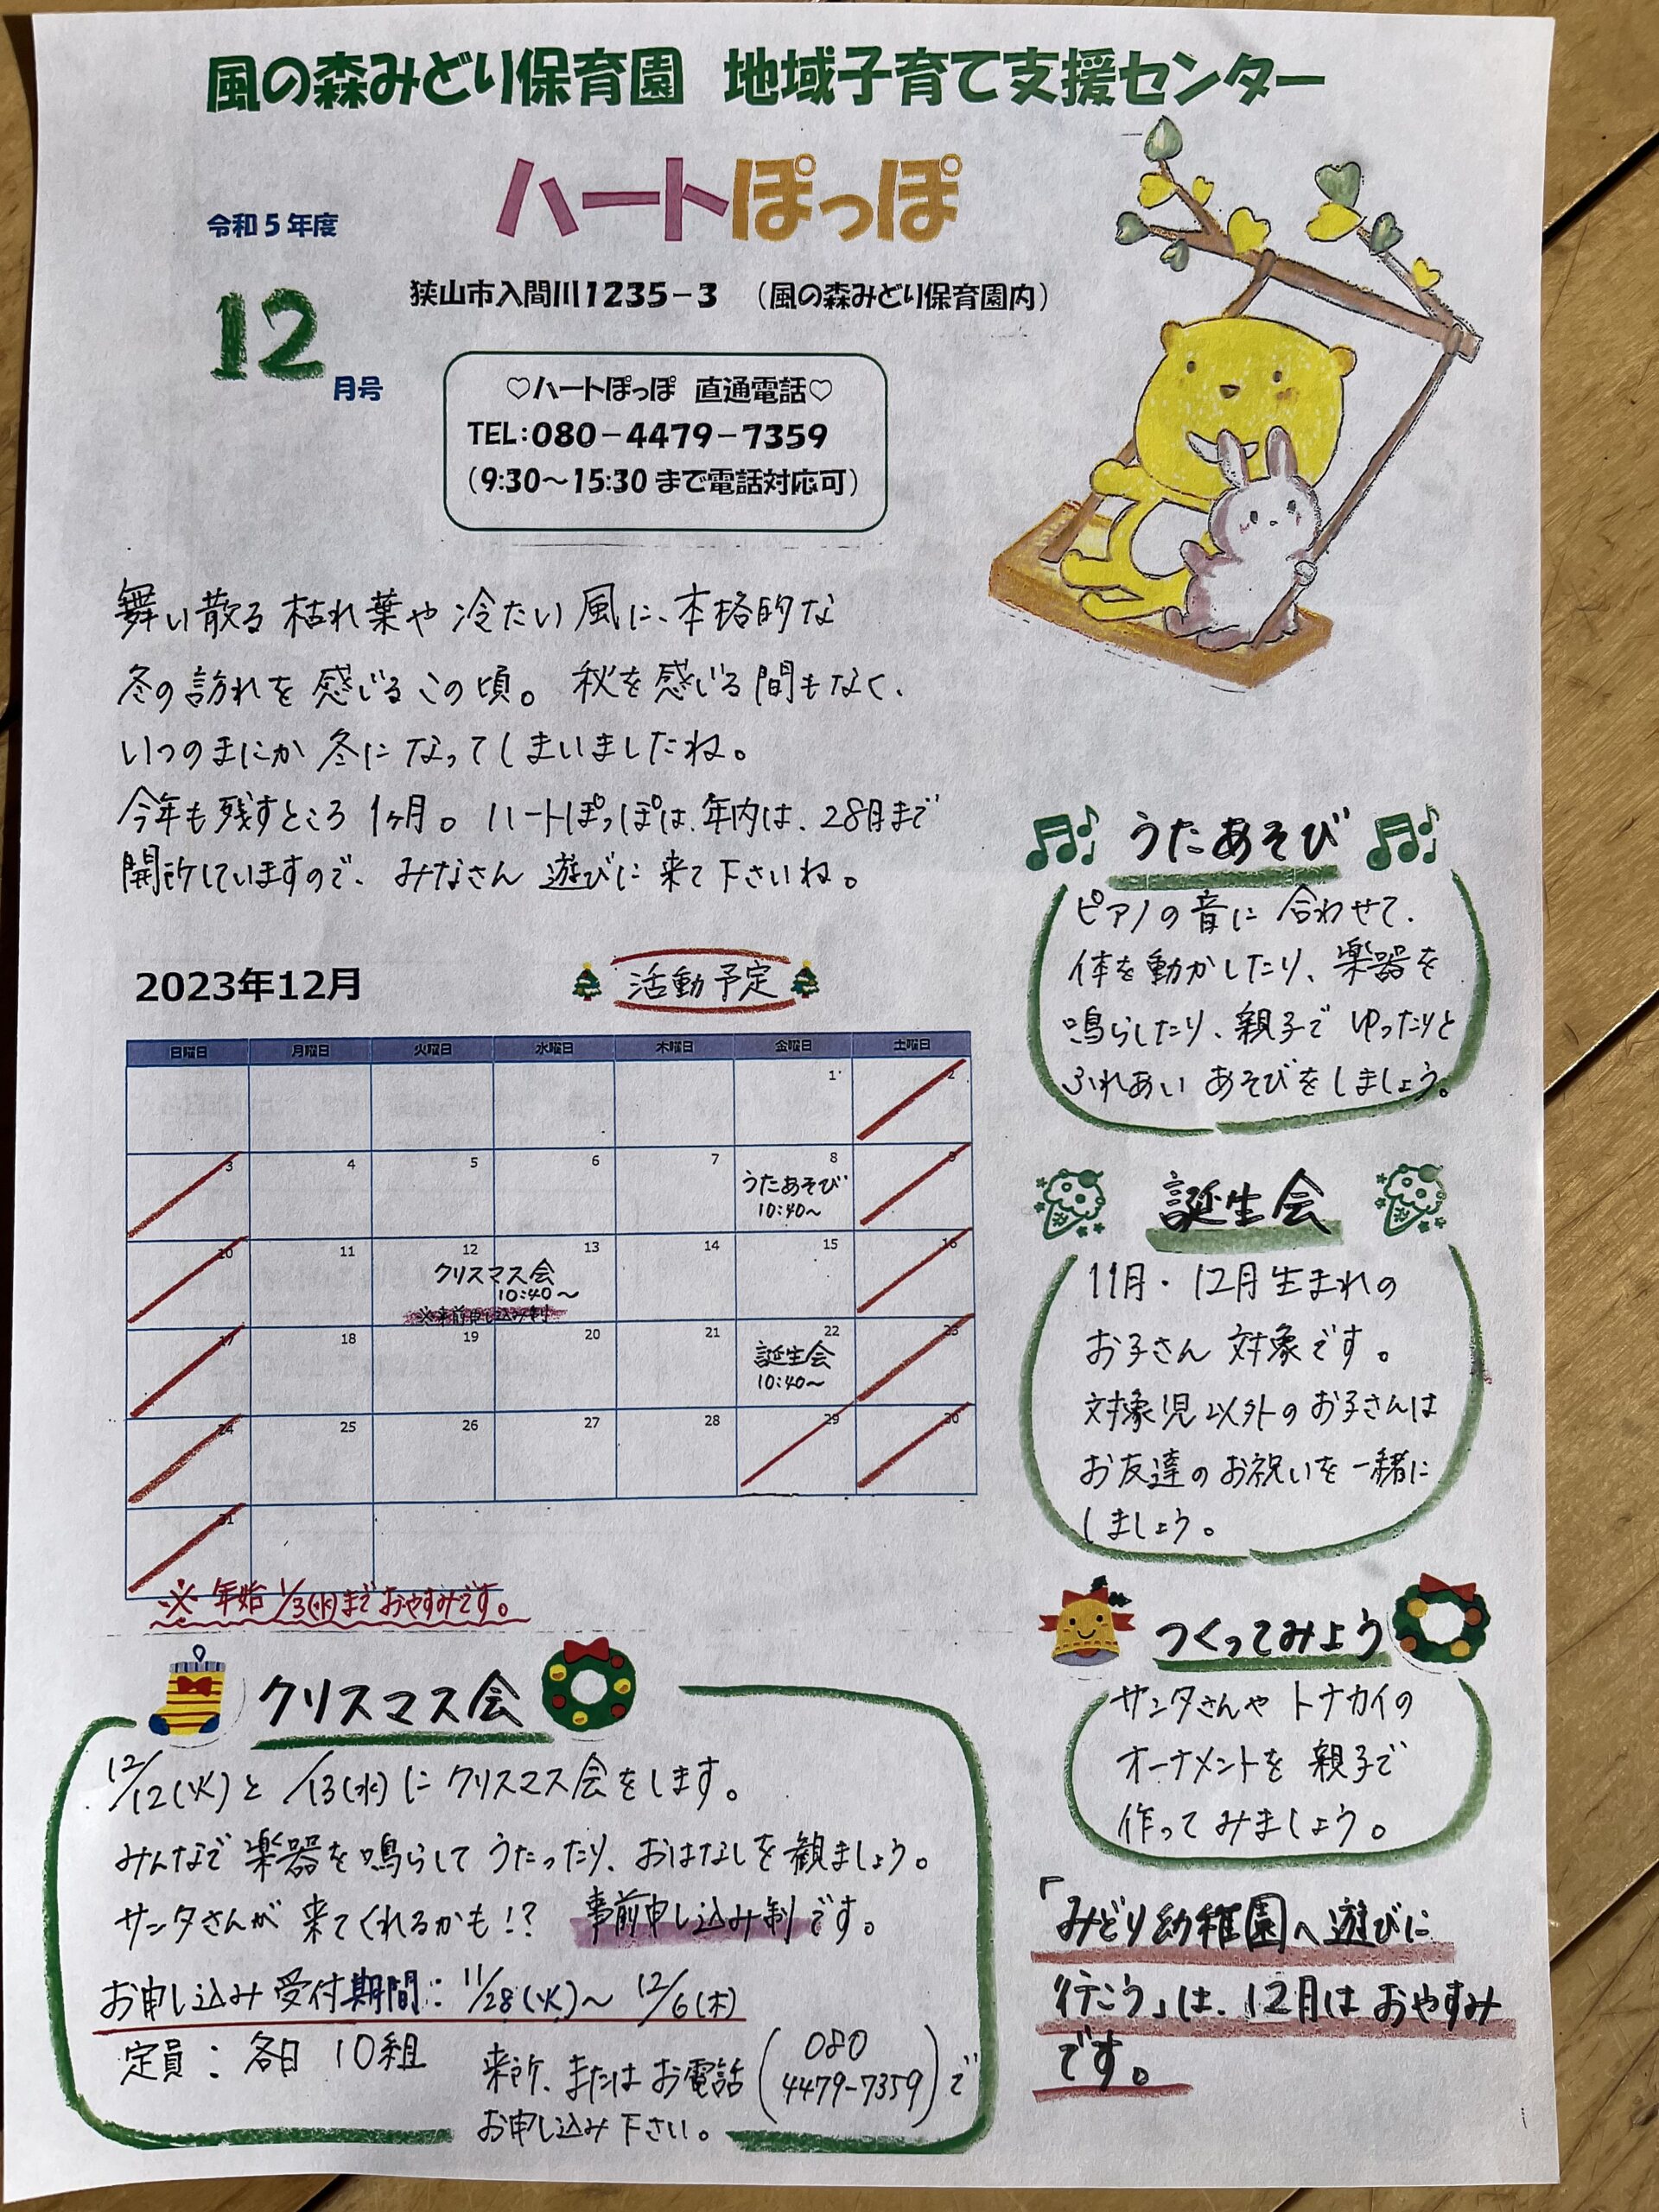 風の森みどり保育園 地域子育て支援センター
ハートぽっぽ
令和5年度
12月号
狭山市入間川1235-3 (風の森みどり保育園内)
♡ハートぽっぽ 直通電話♡
TEL:080-4479-7359
(9:30～15:30まで電話対応可)
舞い散る枯れ葉や冷たい風に、本格的な
冬の訪れを感じるこの頃。秋を感じる間もなく、
いつのまにか冬になってしまいましたね。
今年も残すところ1ヶ月。ハートぽっぽは、年内は、28日まで
開所していますので、みなさん遊びに来て下さいね。
2023年12月
活動予定
日曜日 月曜日 火曜日 水曜日 木曜日 金曜日 土曜日
1 2
3 4 5 6 7 8 9
うたあそび
10:40～
10 11 12 13 14 15 16
クリスマス会
10:40～
※事前申し込み制
17 18 19 20 21 22 23
誕生会
10:40～
24 25 26 27 28 29 30
31
※年始1/3(水)までおやすみです。
うたあそび
ピアノの音に合わせて、
体を動かしたり、楽器を
鳴らしたり、親子でゆったりと
ふれあいあそびをしましょう。
誕生会
11月・12月生まれの
お子さん対象です。
対象児以外のお子さんは
お友達のお祝いを一緒に
しましょう。
つくってみよう
サンタさんやトナカイの
オーナメントを親子で
作ってみましょう。
「みどり幼稚園へ遊びに
行こう」は、12月はおやすみ
です。
クリスマス会
12/12(火)と/13(水)にクリスマス会をします。
みんなで楽器を鳴らしてうたったり、おはなしを観ましょう。
サンタさんが来てくれるかも!? 事前申し込み制です。
お申し込み受付期間：11/28(火)～12/6(木)
定員：各日10組
来所、またはお電話(080 4479-7359)で
お申し込み下さい。